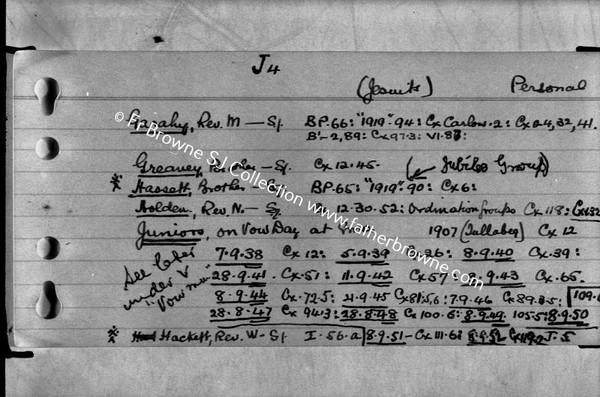 J4
(Jesuits) Personal
Garahy, Rev. M — S.J. BP.66: "1919" 94: Cx Carlow. 2: Cx 24, 32, 41.
B'-2, 89: Cx 97.3: VI.83:
Greaney, Brother — S.J. Cx 12.45. (Jubilee Group)
Hassett, Brother — BP.65: "1919" 90: Cx 6:
Holden, Rev. N. — S.J. 12.30.52: Ordination froups Cx 118:
Juniors, on Vow Day at 1907 (Tullabeg) Cx 12
See later under V "Vow
7.9.38 Cx 12: 5.9.39 26: 8.9.40 Cx 39:
28.9.41. Cx 51: 11.9.42 Cx 57: 9.43 Cx.65.
8.9.44 Cx.72.5: 21.9.45 Cx 81.5,6: 7.9.46 Cx 89.3.5: 109.
28.8.47 Cx 94.3: 28.8.48 Cx 100.6: 8.9.49 105.5: 8.9.50
Hackett, Rev. W — S.J. I.56.a 8.9.51 — Cx 111.6: 8.9.52 J.5
© Fr Browne SJ Collection www.fatherbrowne.com